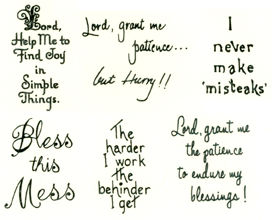 Lord,
Help Me to
Find Joy
in
Simple
Things.
Lord, grant me
patience...
but Hurry!!
I
never
make
'misteaks'
Bless
this
Mess
The
harder
I work
the
behinder
I get
Lord, grant me
the patience
to endure my
blessings!